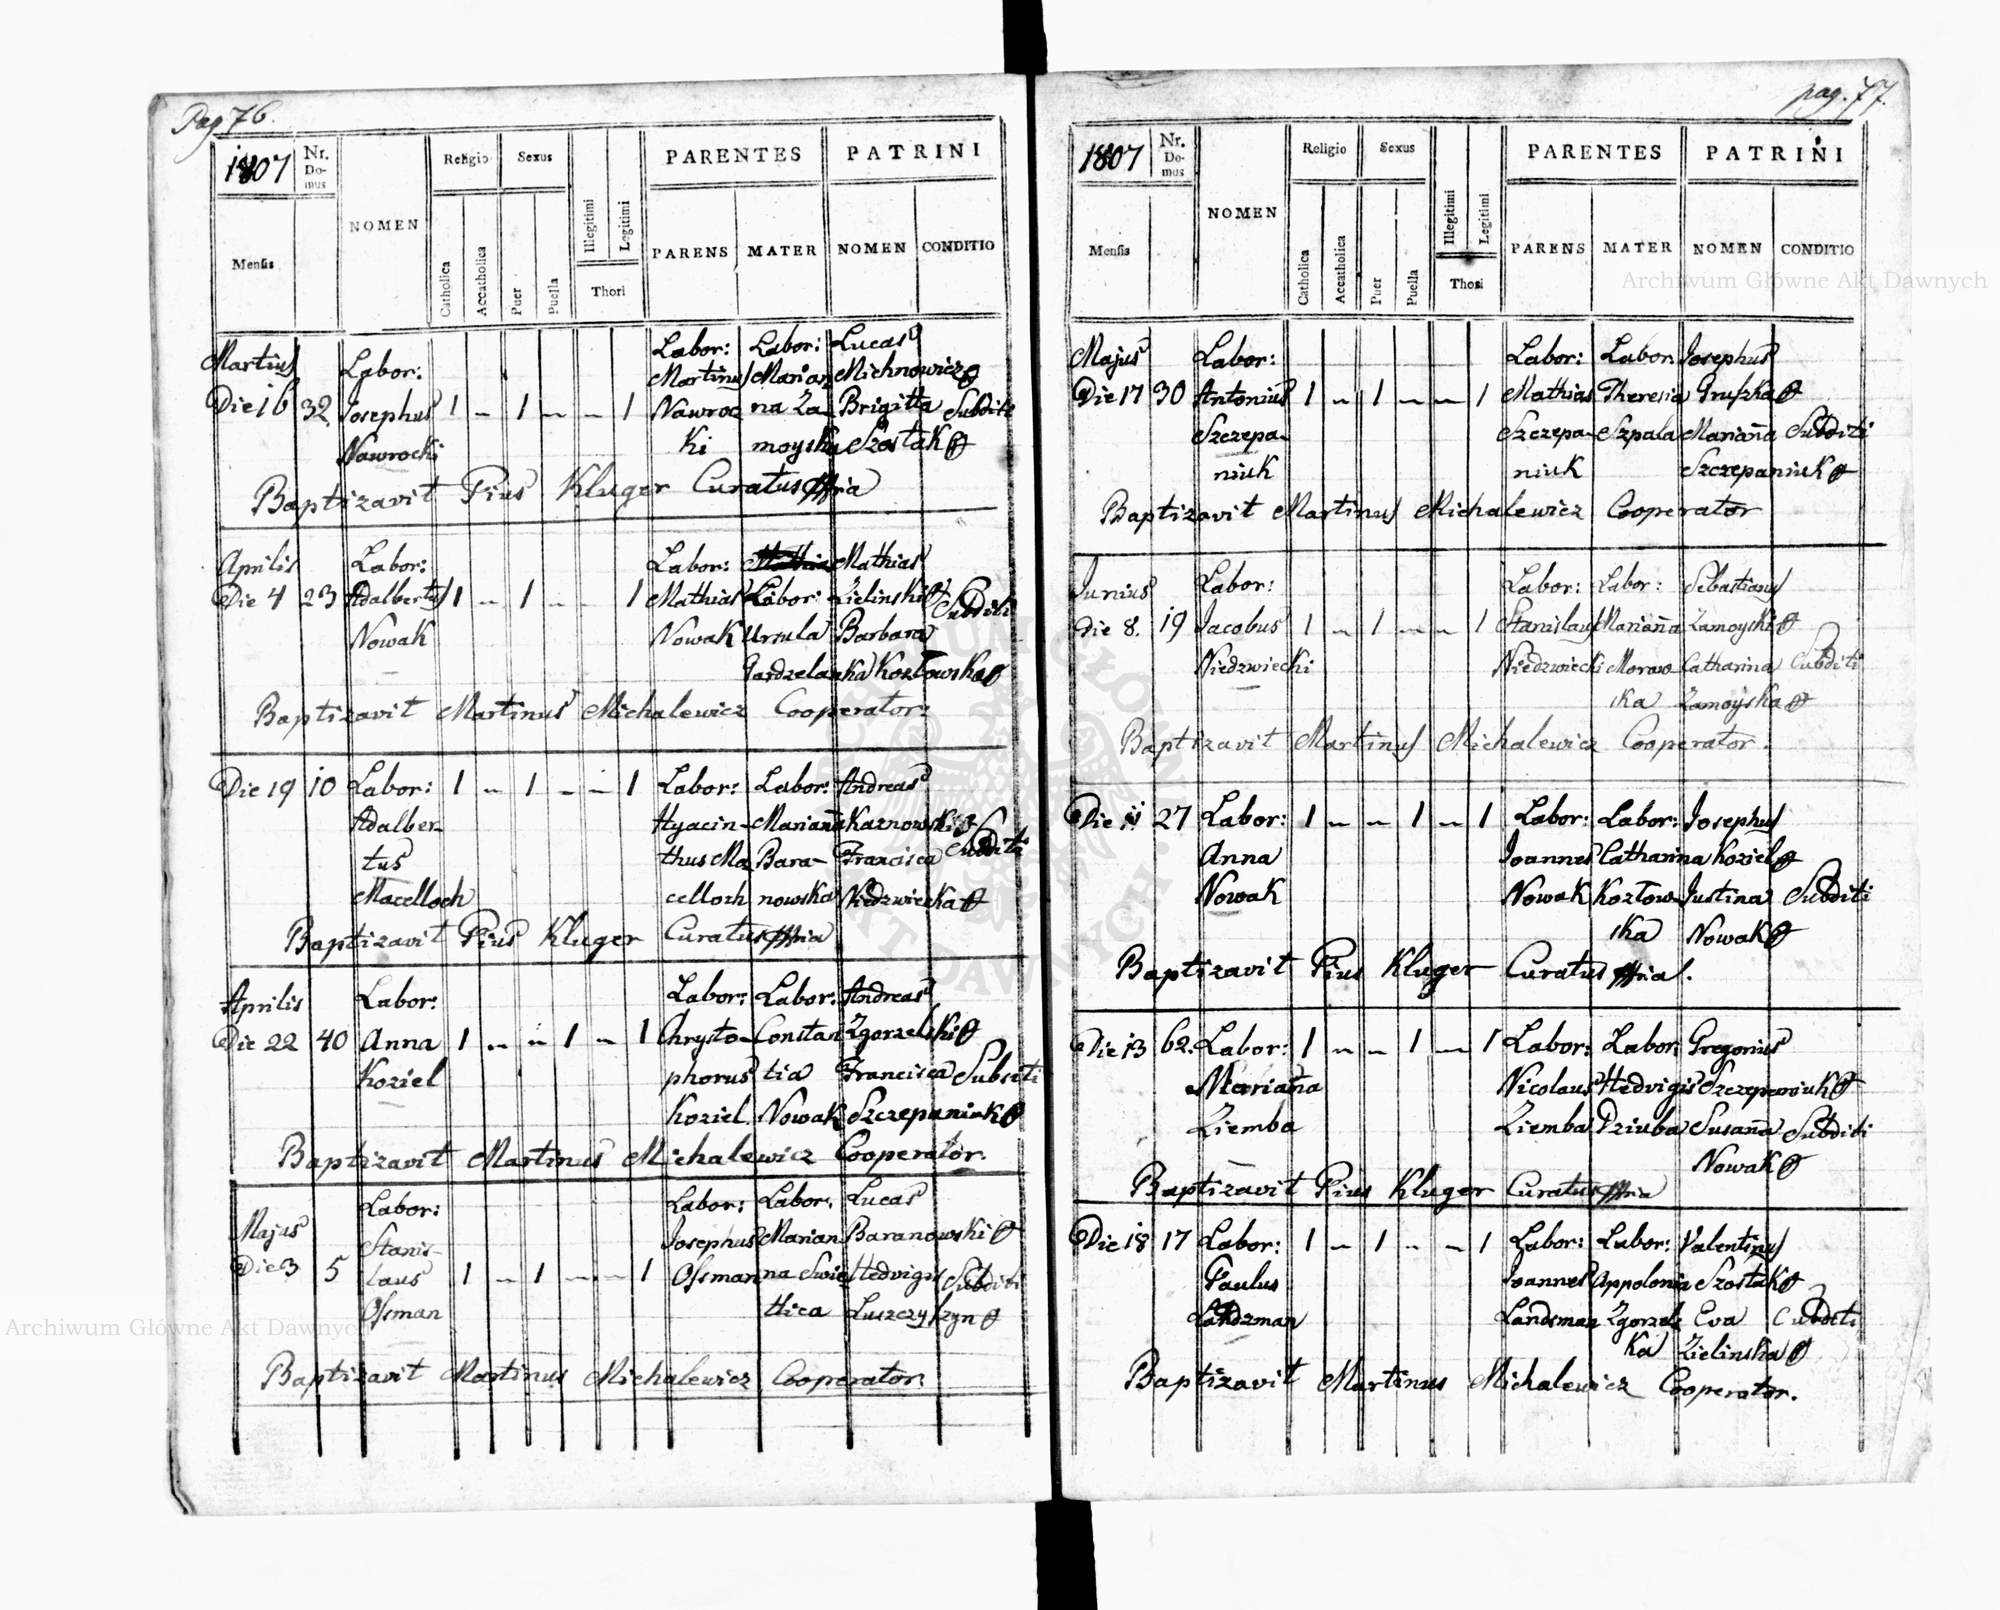 Pag 76.
1807
Nr. Domus
NOMEN
Religio
Sexus
Illegitimi
Legitimi
PARENTES
PATRINI
Mensis
Catholica
Accatholica
Puer
Puella
Thori
PARENS
MATER
NOMEN
CONDITIO
Martius Labor: Labor: Labor: Lucas
Martinus Marian Michnowicz
Die 16 32 Josephus 1 – 1 – – 1 Nawroc na Za Brigitta Subditi
Nawrocki ki moyska Szostak
Baptizavit Pius Kluger Curatus
Aprilis Labor: Labor: Mathias
Die 4 23 Adalbertus 1 – 1 – – 1 Mathias Labor: Zielinski Subditi
Nowak Nowak Ursula Barbara
Gardzelanka Kozłowska
Baptizavit Martinus Michalewicz Cooperator.
Die 19 10 Labor: 1 – 1 – – 1 Labor: Labor: Andreas
Adalber- Hyacin- Mariana Karnowski
tus thus Ma Bara- Francisca Subditi
Macelloch celloch nowska Niedzwiecka
Baptizavit Pius Kluger Curatus
Aprilis Labor: Labor: Labor: Andreas
Die 22 40 Anna 1 – – 1 – 1 Chrysto- Constan Zgorzelski
Koziel phorus tia Francisca Subditi
Koziel Nowak Szczepaniak
Baptizavit Martinus Michalewicz Cooperator
Majus Labor: Labor: Labor. Lucas
Stanis- Josephus Marian Baranowski
Die 3 5 laus 1 – 1 – – 1 Ossman na Swie Hedvigis Subditi
Ossman tlica Luszczyszyn
Baptizavit Martinus Michalewicz Cooperator.
pag. 77.
1807
Nr. Domus
NOMEN
Religio
Sexus
Illegitimi
Legitimi
PARENTES
PATRINI
Mensis
Catholica
Accatholica
Puer
Puella
Thori
PARENS
MATER
NOMEN
CONDITIO
Majus Labor: Labor: Labor: Josephus
Die 17 30 Antonius 1 – 1 – – 1 Mathias Theresia Gruszka
Szczepa- Szczepa- Szpala Mariana Subditi
niuk niuk Szczepaniuk
Baptizavit Martinus Michalewicz Cooperator
Junius Labor: Labor: Labor: Sebastianus
die 8. 19 Jacobus 1 – 1 – – 1 Stanislaus Mariana Zamoyski
Niedzwiecki Niedzwiecki Moraw- Catharina Subditi
ska Zamoyska
Baptizavit Martinus Michalewicz Cooperator.
Die 11 27 Labor: 1 – – 1 – 1 Labor: Labor: Josephus
Anna Joannes Catharina Koziel
Nowak Nowak Kozłow- Justina Subditi
ska Nowak
Baptizavit Pius Kluger Curatus
Die 13 62. Labor: 1 – – 1 – 1 Labor: Labor: Gregorius
Mariana Nicolaus Hedvigis Szczepaniuk
Ziemba Ziemba Dziuba Susana Subditi
Nowak
Baptizavit Pius Kluger Curatus
Die 18 17 Labor: 1 – 1 – – 1 Labor: Labor: Valentinus
Paulus Joannes Appolonia Szostak
Landzman Landsman Zgorzels Eva Subditi
ka Zielinska
Baptizavit Martinus Michalewicz Cooperator.
Archiwum Główne Akt Dawnych
Archiwum Główne Akt Dawnych
ARCHIWUM GŁÓWNE AKT DAWNYCH